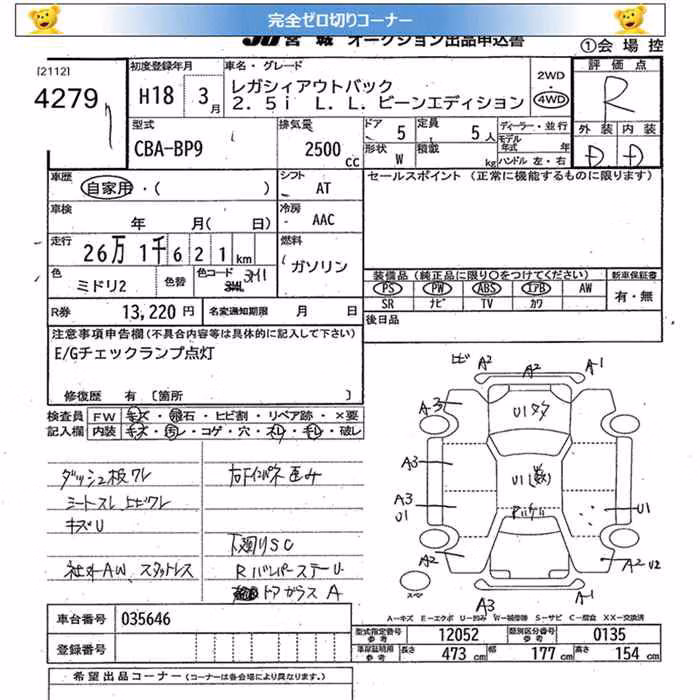 完全ゼロ切りコーナー
JU宮城 オークション出品申込書
①会場控
[2112]
4279
初度登録年月
H18 3月
車名・グレード
レガシィアウトバック
2.5i L.L.ビーンエディション
2WD
・
4WD
評価点
R
型式
CBA-BP9
排気量
2500cc
ドア 5
定員 5人
形状 W
積載 kg
ディーラー・並行
モデル年式 年
ハンドル 左・右
外装 内装
D D
車歴
自家用・( )
シフト AT
セールスポイント (正常に機能するものに限ります)
車検
年 月( 日)
冷房 AAC
走行
26万 1千 6 2 1 km
燃料
ガソリン
色
ミドリ2
色替
色コード 3M1
装備品 (純正品に限り○をつけてください)
新車保証書
PS PW ABS エアB AW
SR ナビ TV カワ
有・無
R券 13,220円
名変通知期限 月 日
後日品
注意事項申告欄(不具合内容等は具体的に記入して下さい)
E/Gチェックランプ点灯
修復歴 有 〔箇所 〕
検査員 FW キズ・飛石・ヒビ割・リペア跡・×要
記入欄 内装 キズ・汚レ・コゲ・穴・スレ・モレ・破レ
ダッシュ板ワレ
シートスレ
キズU
社外AW、スタッドレス
下廻りSC
Rバンパーステー U
ドアガラス A
ヒビ A2 A2 A-1
A-3
U1
A3
U1(数)
A3
U1
U1
A2
A2 U2
A3
A-1
A-キズ E-エクボ U-凹み W-補修跡 S-サビ C-腐食 XX-交換済
車台番号 035646
登録番号
型式指定番号 参考 12052
類別区分番号 参考 0135
車庫証明用 参考
長さ 473 cm
幅 177 cm
高さ 154 cm
希望出品コーナー (コーナーは各会場により異なります。)